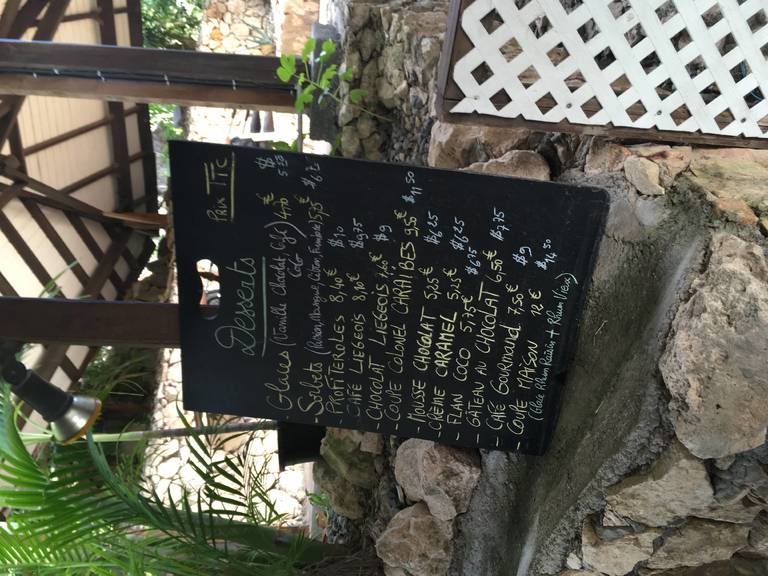 Desserts
Prix TTC
Glaces (Vanille Chocolat Café) 4,70 € $ 5,50
Coco
Sorbets (Passion, Mangue, Citron, 5,25 €
- PROFITEROLES 8,40 € $ 10
- CAFÉ LIEGEOIS 8,10 € $ 9,75
- CHOCOLAT LIEGEOIS € $ 9
- COUPE COLONEL CARAIBES 9,50 € $ 11,50
- MOUSSE CHOCOLAT 5,25 € $ 6,25
- CRÈME CARAMEL 5,25 € $ 6,25
- FLAN COCO 5,75 € $ 6,75
- GÂTEAU AU CHOCOLAT 6,50 € $ 7,75
- CAFÉ Gourmand 7,50 € $ 9
- COUPE MAISON 12 € $ 14,50
(Glace Rhum Raisin + Rhum Vieux)